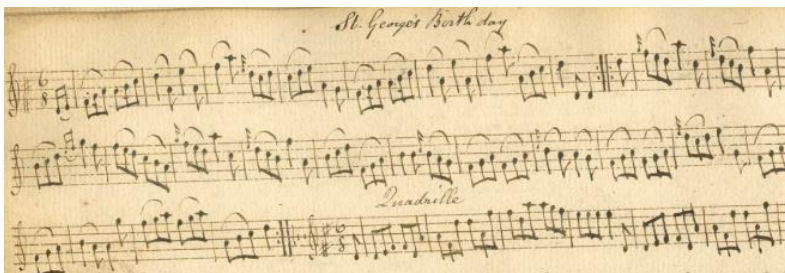 St. George's Birth day
6
8
Quadrille
6
8